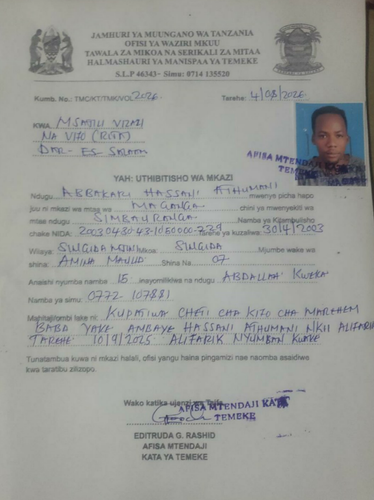 JAMHURI YA MUUNGANO WA TANZANIA
OFISI YA WAZIRI MKUU
TAWALA ZA MIKOA NA SERIKALI ZA MITAA
HALMASHAURI YA MANISPAA YA TEMEKE
S.L.P 46343- Simu: 0714 135520
Kumb. Na.: TMC/KT/TMK/VOL 2026 Tarehe: 4/08/2026
KWA, MSAJILI VIZAZI
NA VIFO (RITA)
DAR-ES-SALAAM
AFISA MTENDAJI
TEMEKE
YAH: UTHIBITISHO WA MKAZI
Ndugu ABBAKARI HASSANI ATHUMANI mwenye picha hapo
juu ni mkazi wa mtaa wa MAGANGA chini ya mwenyekiti wa
mtaa ndugu SIMBAURANGA Namba ya Kitambulisho
chake NIDA: 20030430-43-105000 Tarehe ya kuzaliwa: 30/4/2003
Wilaya: SINGIDA MJINI Mkoa: SINGIDA Mjumbe wake wa
shina: AMINA MAULID Shina Na 07
Anaishi nyumba namba 15 inayomilikiwa na ndugu ABDALLAH KWEKA
Namba ya simu: 0772-107881
Mahitaji/ombi lake ni: KUPATIWA CHETI CHA KIFO CHA MAREHEM
BABA YAKE AMBAYE HASSANI ATHUMANI NKII ALIFARIKI
TAREHE 10/9/2025 ALIFARIK NYUMBAN KWAKE
Tunatambua kuwa ni mkazi halali, ofisi yangu haina pingamizi nae naomba asaidiwe
kwa taratibu zilizopo.
Wako katika ujenzi wa Taifa
AFISA MTENDAJI KATA
TEMEKE
EDITRUDA G. RASHID
AFISA MTENDAJI
KATA YA TEMEKE